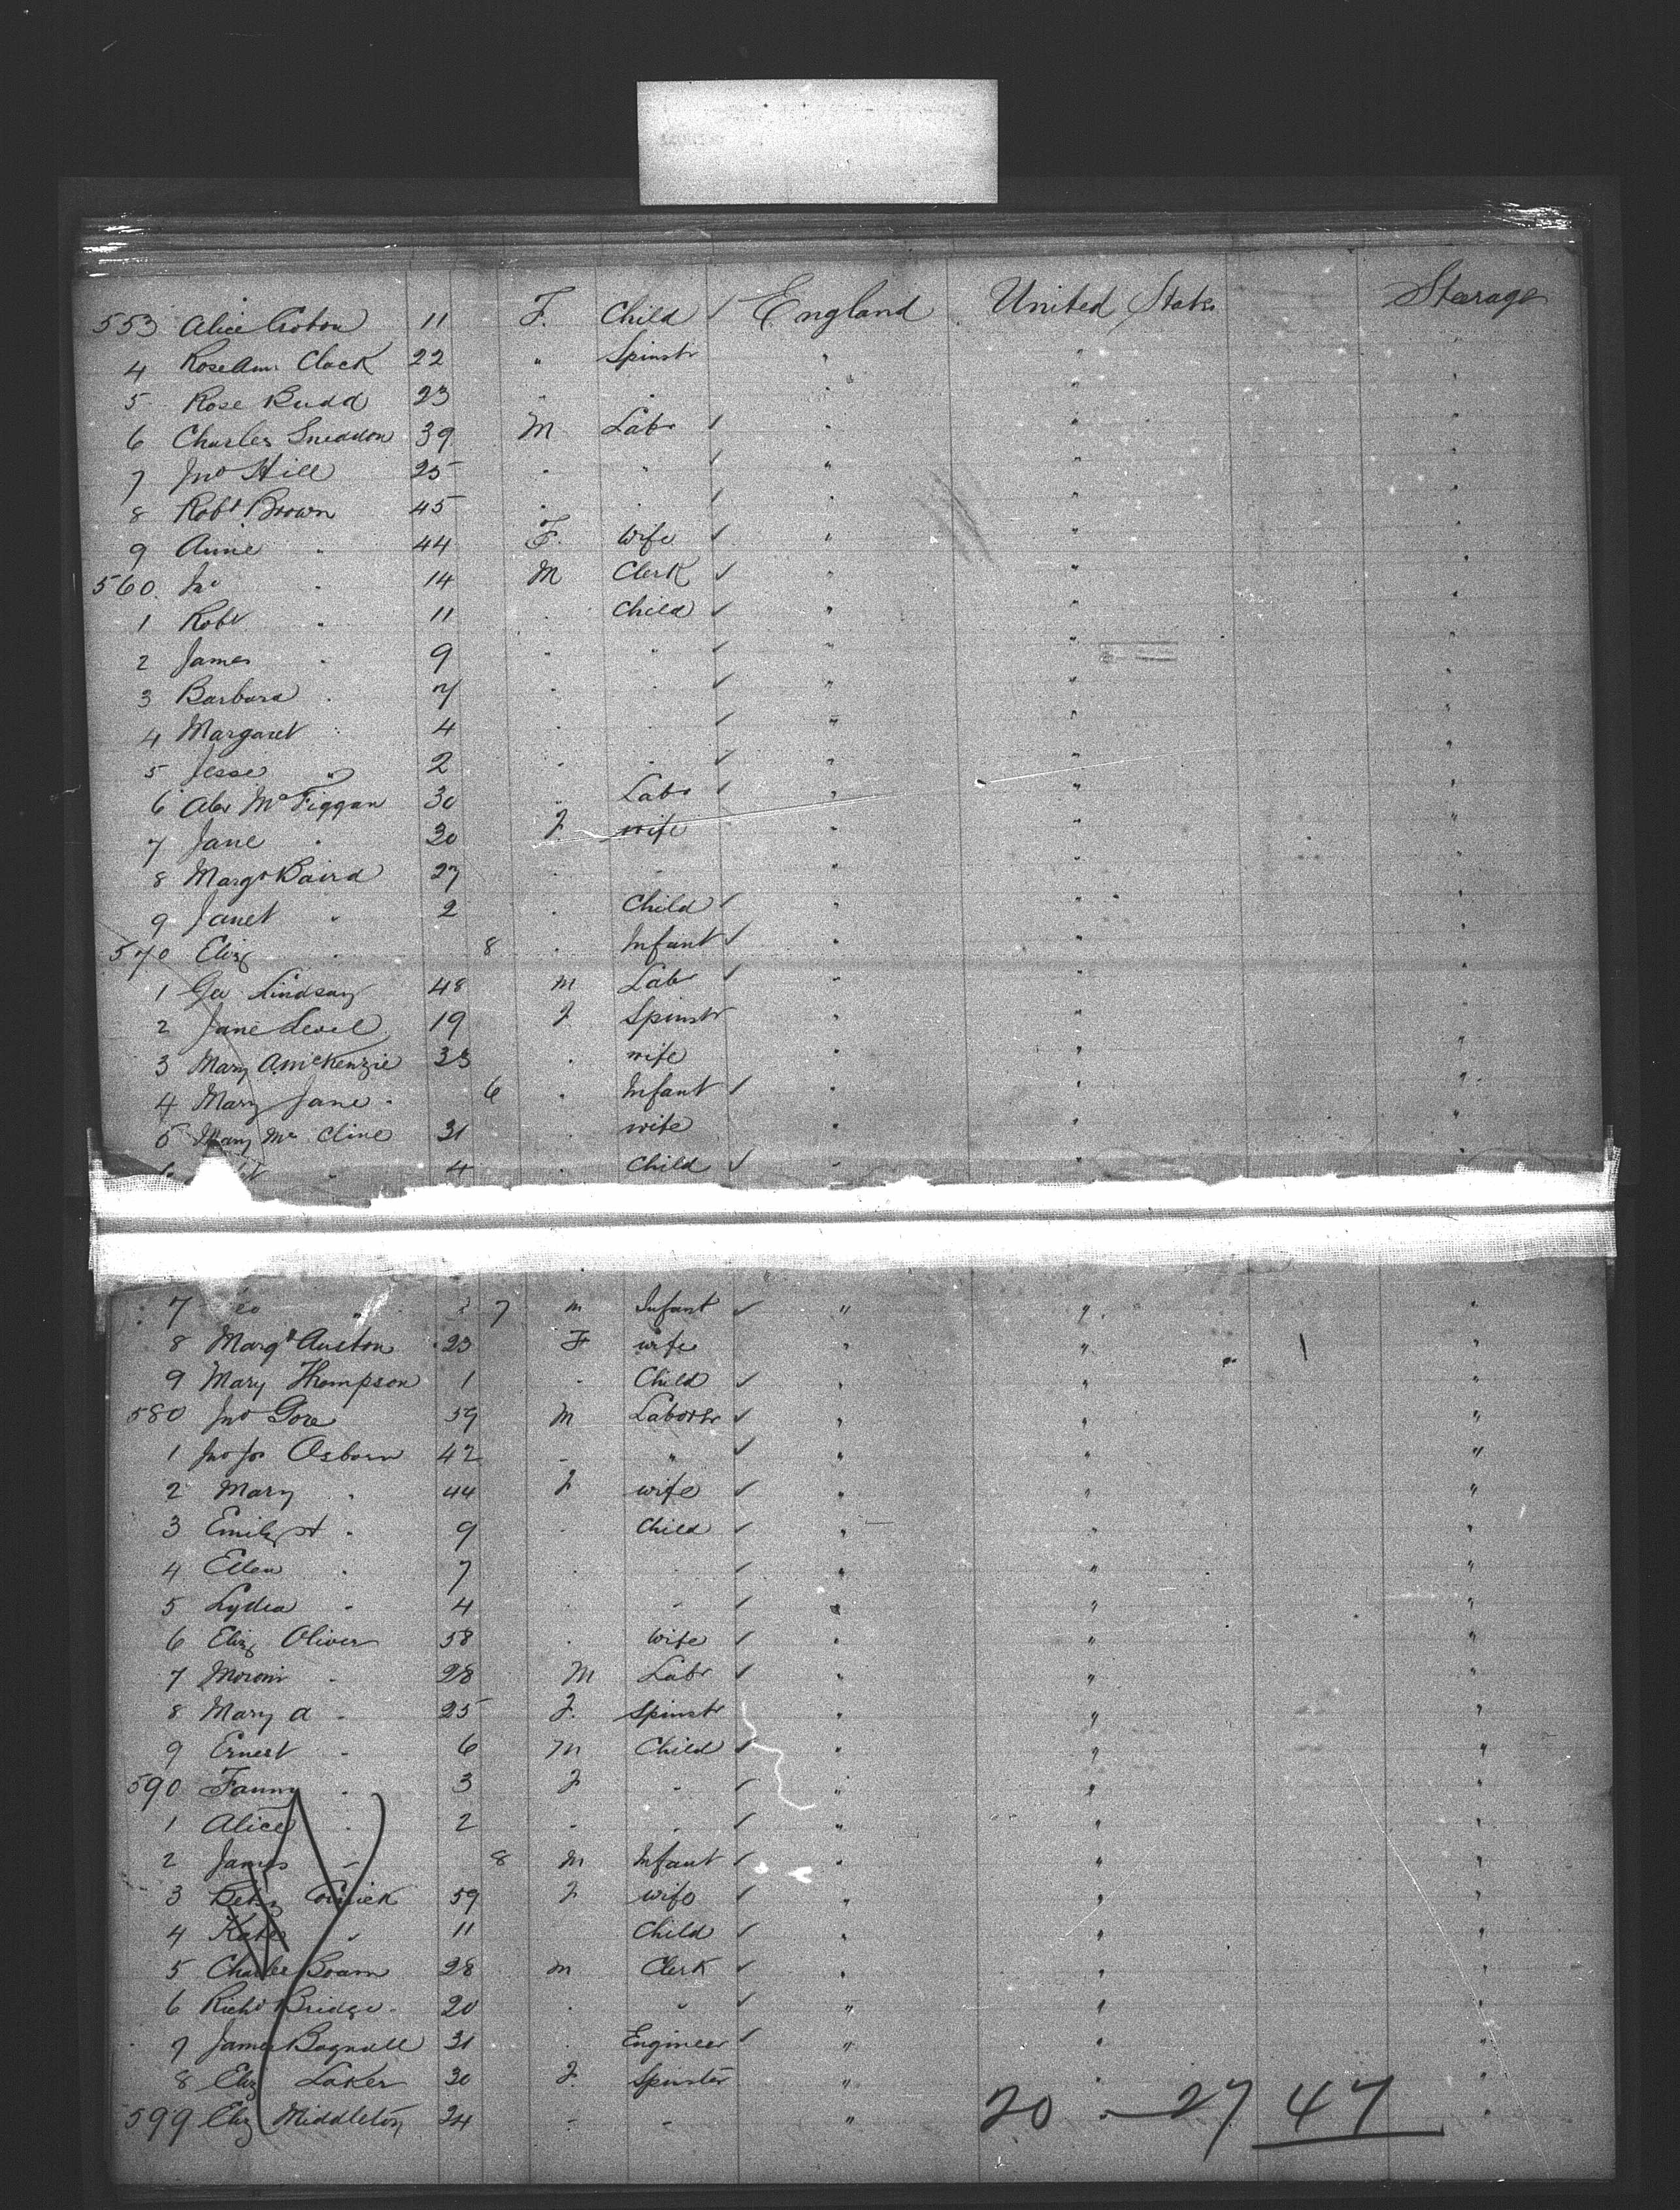 553 Alice 11 F. Child ✓ England United States Stearage
4 RoseAnn Clack 22 " Spinstr " " "
5 Rose Budd 23 " " " " "
6 Charles Sneddon 39 M Labr ✓ " " "
7 Jno Hill 25 " " ✓ " " "
8 Robt Brown 45 " " ✓ " " "
9 Anne " 44 F. Wife ✓ " " "
560 Jno " 14 M Clerk ✓ " " "
1 Robt " 11 " Child ✓ " " "
2 James " 9 " " ✓ " " "
3 Barbara " 7 " " ✓ " " "
4 Margaret " 4 " " ✓ " " "
5 Jesse " 2 " " ✓ " " "
6 Alex McFiggan 30 " Labr ✓ " " "
7 Jane " 30 F wife " " "
8 Margt Baird 27 " " " " "
9 Janet " 2 " Child ✓ " " "
570 Eliz " 8 " Infant ✓ " " "
1 Geo Lindsay 48 M Labr ✓ " " "
2 Jane 19 F Spinstr " " "
3 Mary A McKenzie 33 " wife " " "
4 Mary Jane " 6 " Infant ✓ " " "
5 Mary Mc Cline 31 " wife " " "
4 " Child ✓ " " "
7 " 7 M Infant ✓ " " "
8 Margt Auston 23 F wife " " "
9 Mary Thompson 1 " Child ✓ " " "
580 Jno Gore 59 M Laborer ✓ " " "
1 Jno Jos Osborn 42 " " ✓ " " "
2 Mary " 44 F wife ✓ " " "
3 Emily A " 9 " Child ✓ " " "
4 Ellen " 7 " " ✓ " " "
5 Lydia " 4 " " ✓ " " "
6 Eliz Oliver 58 " Wife ✓ " " "
7 Moroni " 28 M Labr ✓ " " "
8 Mary A " 25 F. Spinstr " " "
9 Ernest " 6 M Child ✓ " " "
590 Fanny " 3 F " ✓ " " "
1 Alice " 2 " " ✓ " " "
2 James " 8 M Infant ✓ " " "
3 Betsy 59 F wife ✓ " " "
4 Kate " 11 Child ✓ " " "
5 Charles Boam 28 M Clerk ✓ " " "
6 Richd Bridge 20 " " ✓ " " "
7 James Bagnall 31 " Engineer ✓ " " "
8 Eliz Laker 30 F. Spinster " " "
599 Eliz Middleton 24 " " " " "
20 - 27 47